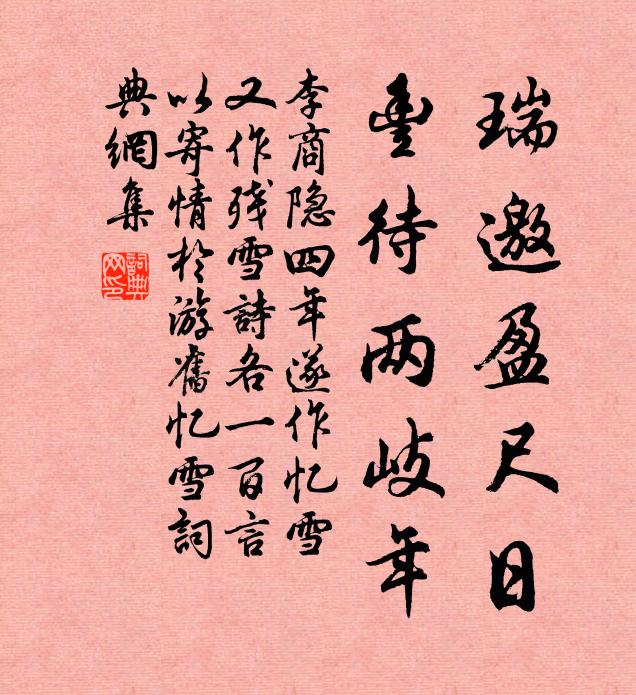 瑞邀盈尺日
豊待两岐年
李商隐四年遂作忆雪
又作残雪詩各一百言
以寄情於游舊忆雪詞
典網集
詞典网印